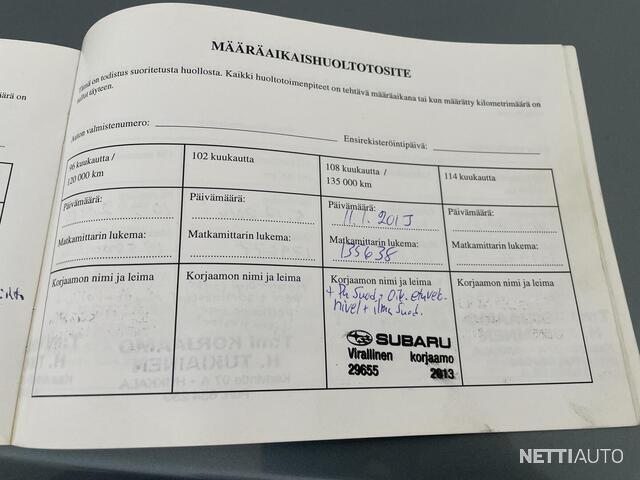 MÄÄRÄAIKAISHUOLTOTOSITE
Tämä on todistus suoritetusta huollosta. Kaikki huoltotoimenpiteet on tehtävä määräaikana tai kun määrätty kilometrimäärä on
tullut täyteen.
Auton valmistenumero:
Ensirekisteröintipäivä:
96 kuukautta /
120 000 km
102 kuukautta
108 kuukautta /
135 000 km
114 kuukautta
Päivämäärä:
Päivämäärä:
Päivämäärä:
11.1.2013
Päivämäärä:
Matkamittarin lukema:
Matkamittarin lukema:
Matkamittarin lukema:
135638
Matkamittarin lukema:
Korjaamon nimi ja leima
Korjaamon nimi ja leima
Korjaamon nimi ja leima
+ Pa Suod. Oik. etuvet.
nivel + ilma Suod.
SUBARU
Virallinen korjaamo
29655 2013
Korjaamon nimi ja leima
NETTIAUTO